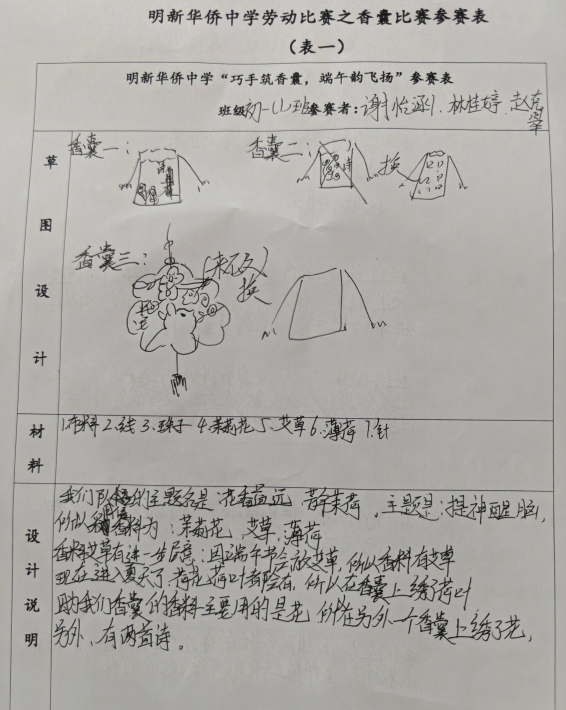 明新华侨中学劳动比赛之香囊比赛参赛表
（表一）
明新华侨中学“巧手筑香囊，端午韵飞扬”参赛表
班级初一(4)班参赛者：谢怡涵、林桂婷、赵
草图设计
香囊一：
香囊二：
诗
换
香囊三：
(来不及)
换
材料
1.布料 2.线 3.珠子 4.茉莉花 5.艾草 6.薄荷 7.针
设计说明
我们队伍的主题名是：花香益远 ，主题是：提神醒脑，
所以香料为：茉莉花，艾草，薄荷
香料艾草有进一步寓意：因端午节会放艾草，所以香料有艾草
现在进入夏天了，荷花荷叶都会在，所以在香囊上绣荷叶
因我们香囊的香料主要用的是花，所以在另外一个香囊上绣了花，
另外，有两首诗。